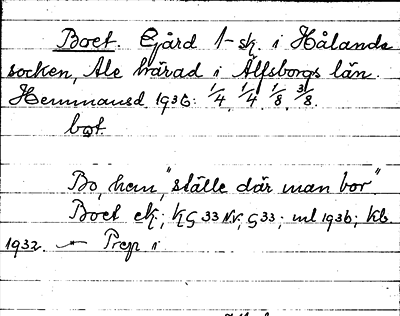 Boet. Gård 1-sk. i Hålanda
socken, Ale härad i Älfsborgs län.
Hemmansd 1936: 1/4, 1/4, 1/8, 3/8.
bot
Bo, hem, "ställe där man bor"
Boet ek; KG 33 NV, G 33; ml 1936; kb.
1932. — Prep i